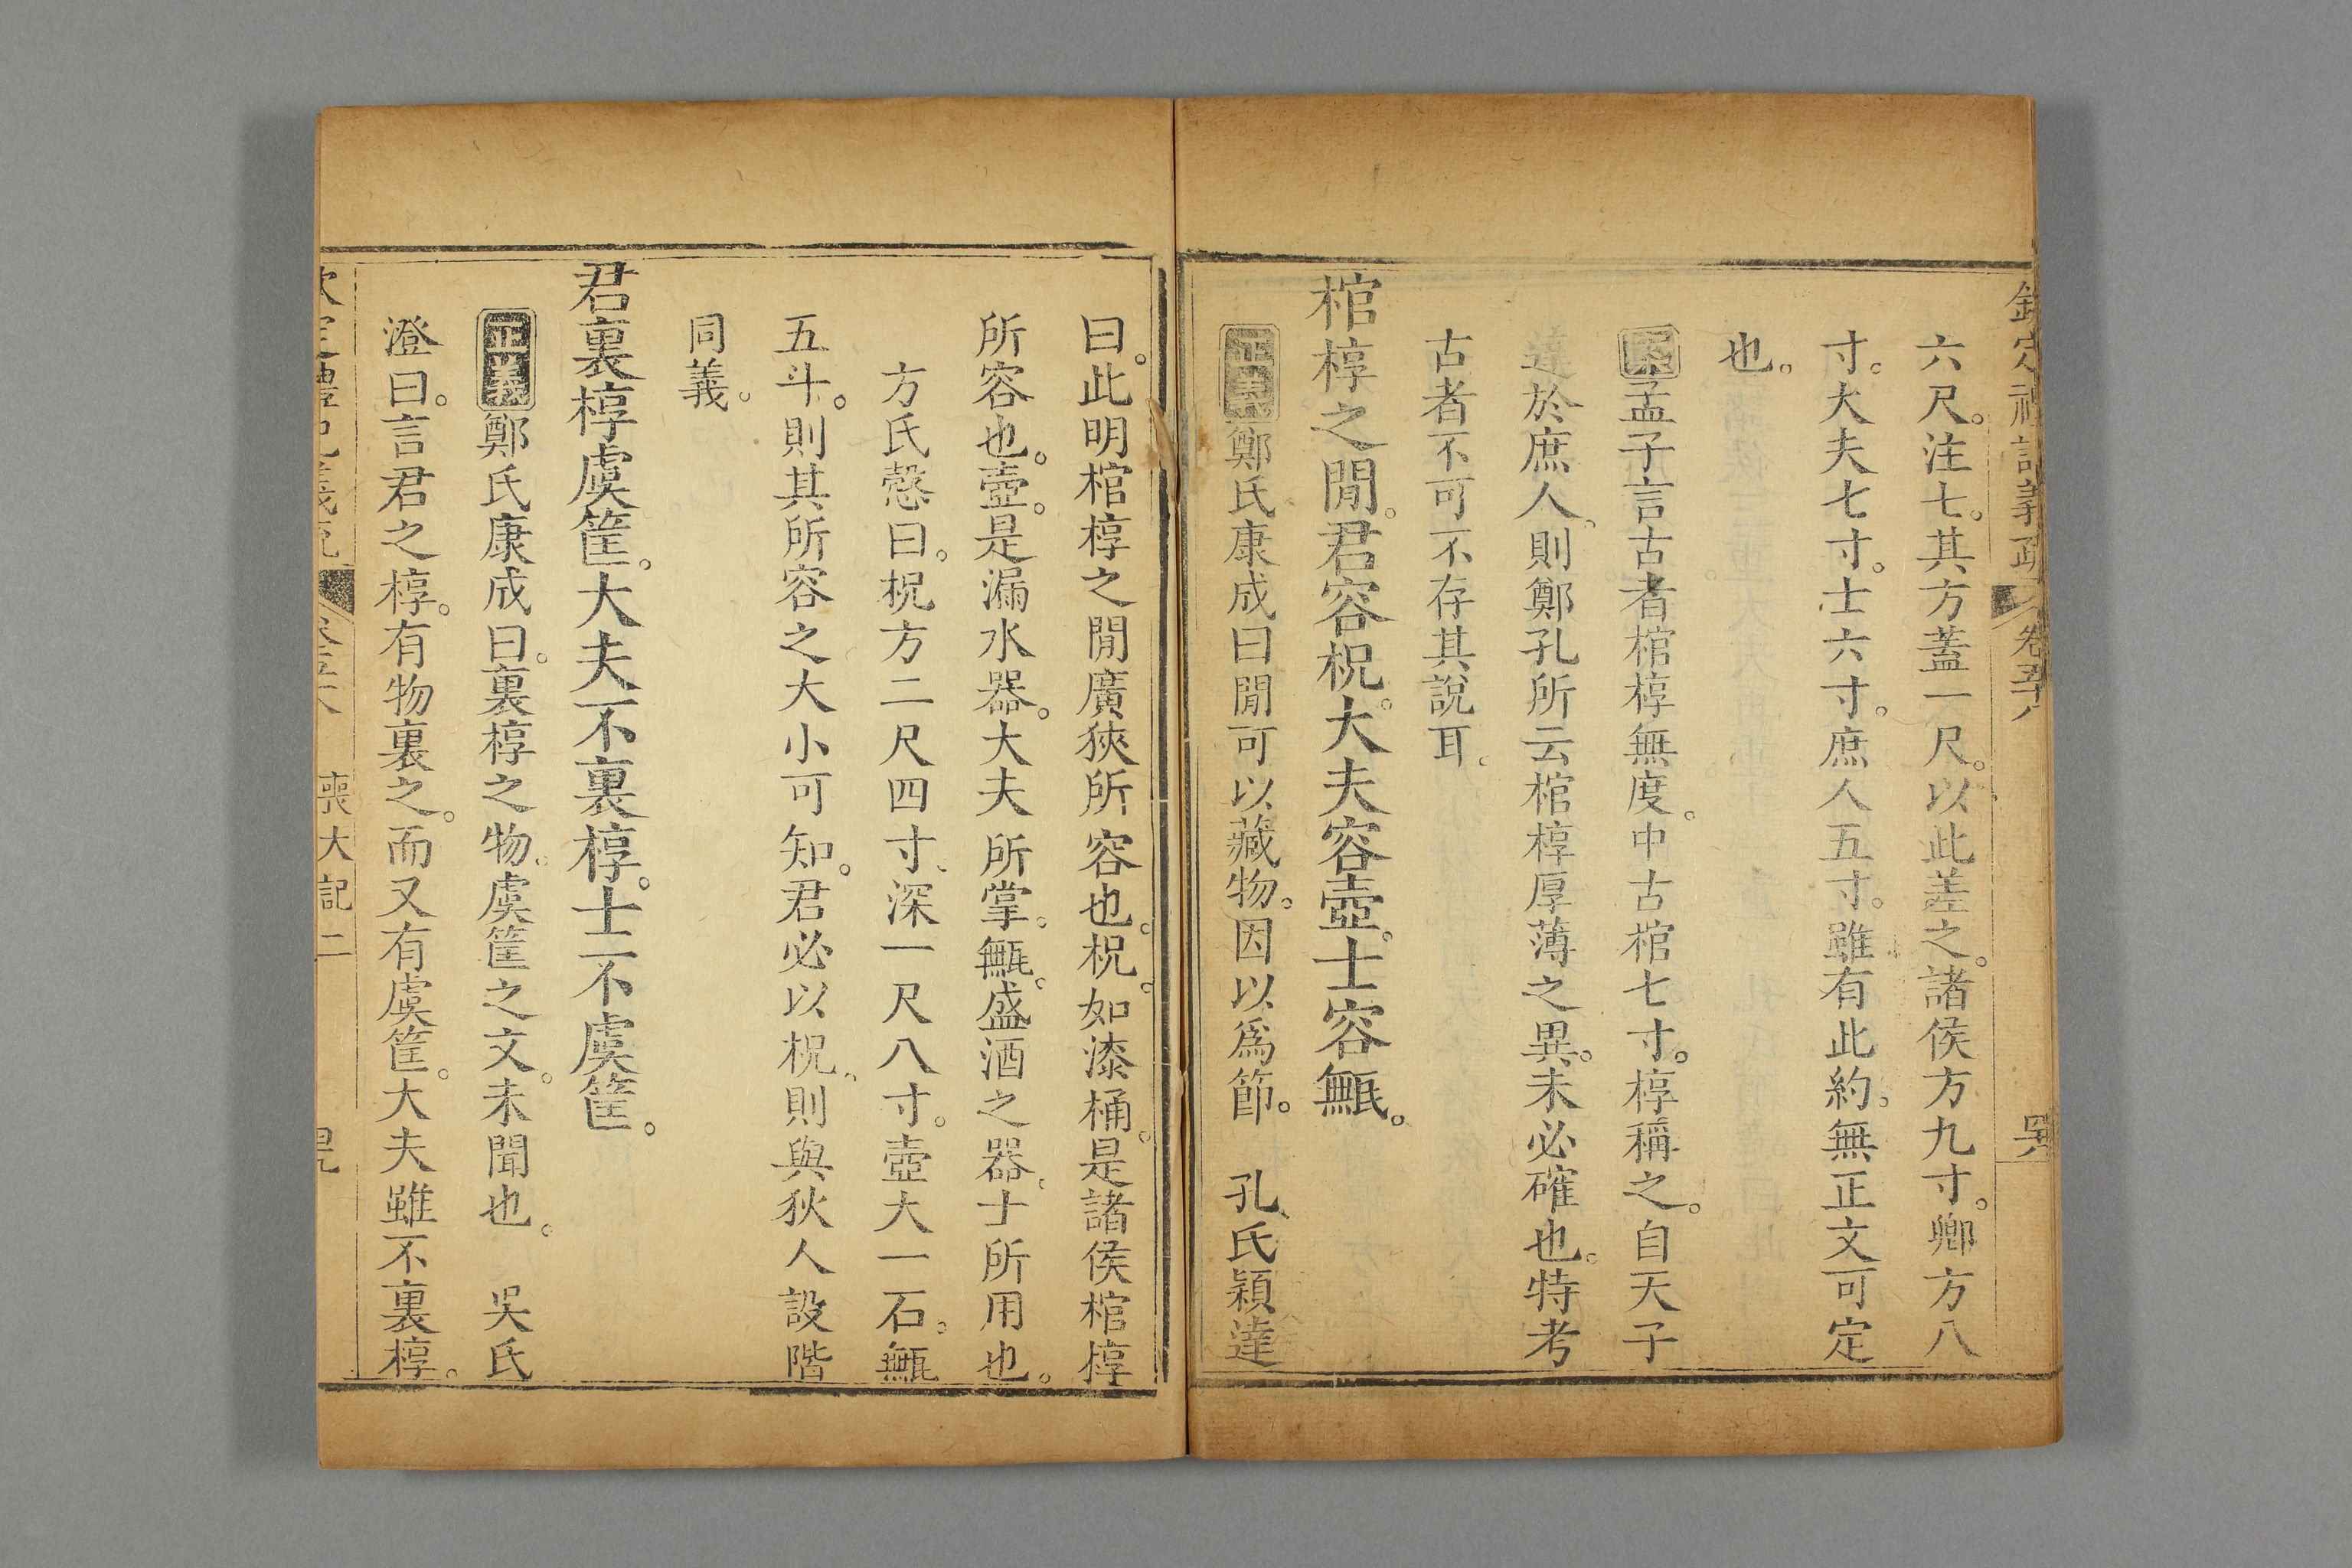 欽定禮記義疏 卷五十八
六尺。注七。其方蓋一尺。以此差之。諸侯方九寸。卿方八
寸。大夫七寸。士六寸。庶人五寸。雖有此約。無正文可定
也。
案孟子言古者棺椁無度。中古棺七寸。椁稱之。自天子
達於庶人。則鄭孔所云棺椁厚薄之異。未必確也。特考
古者不可不存其說耳。
棺椁之閒。君容柷。大夫容壺。士容甒。
正義鄭氏康成曰閒可以藏物。因以爲節。 孔氏穎達
曰。此明棺椁之閒廣狹所容也。柷。如漆桶。是諸侯棺椁
所容也。壺。是漏水器。大夫所掌。甒。盛酒之器。士所用也。
方氏慤曰。柷方二尺四寸、深一尺八寸。壺大一石。甒
五斗。則其所容之大小可知。君必以柷、則與狄人設階
同義。
君裏椁虞筐。大夫不裏椁。士不虞筐。
正義鄭氏康成曰。裏椁之物。虞筐之文。未聞也。 吳氏
澄曰。言君之椁。有物裏之。而又有虞筐。大夫雖不裏椁。
喪大記二